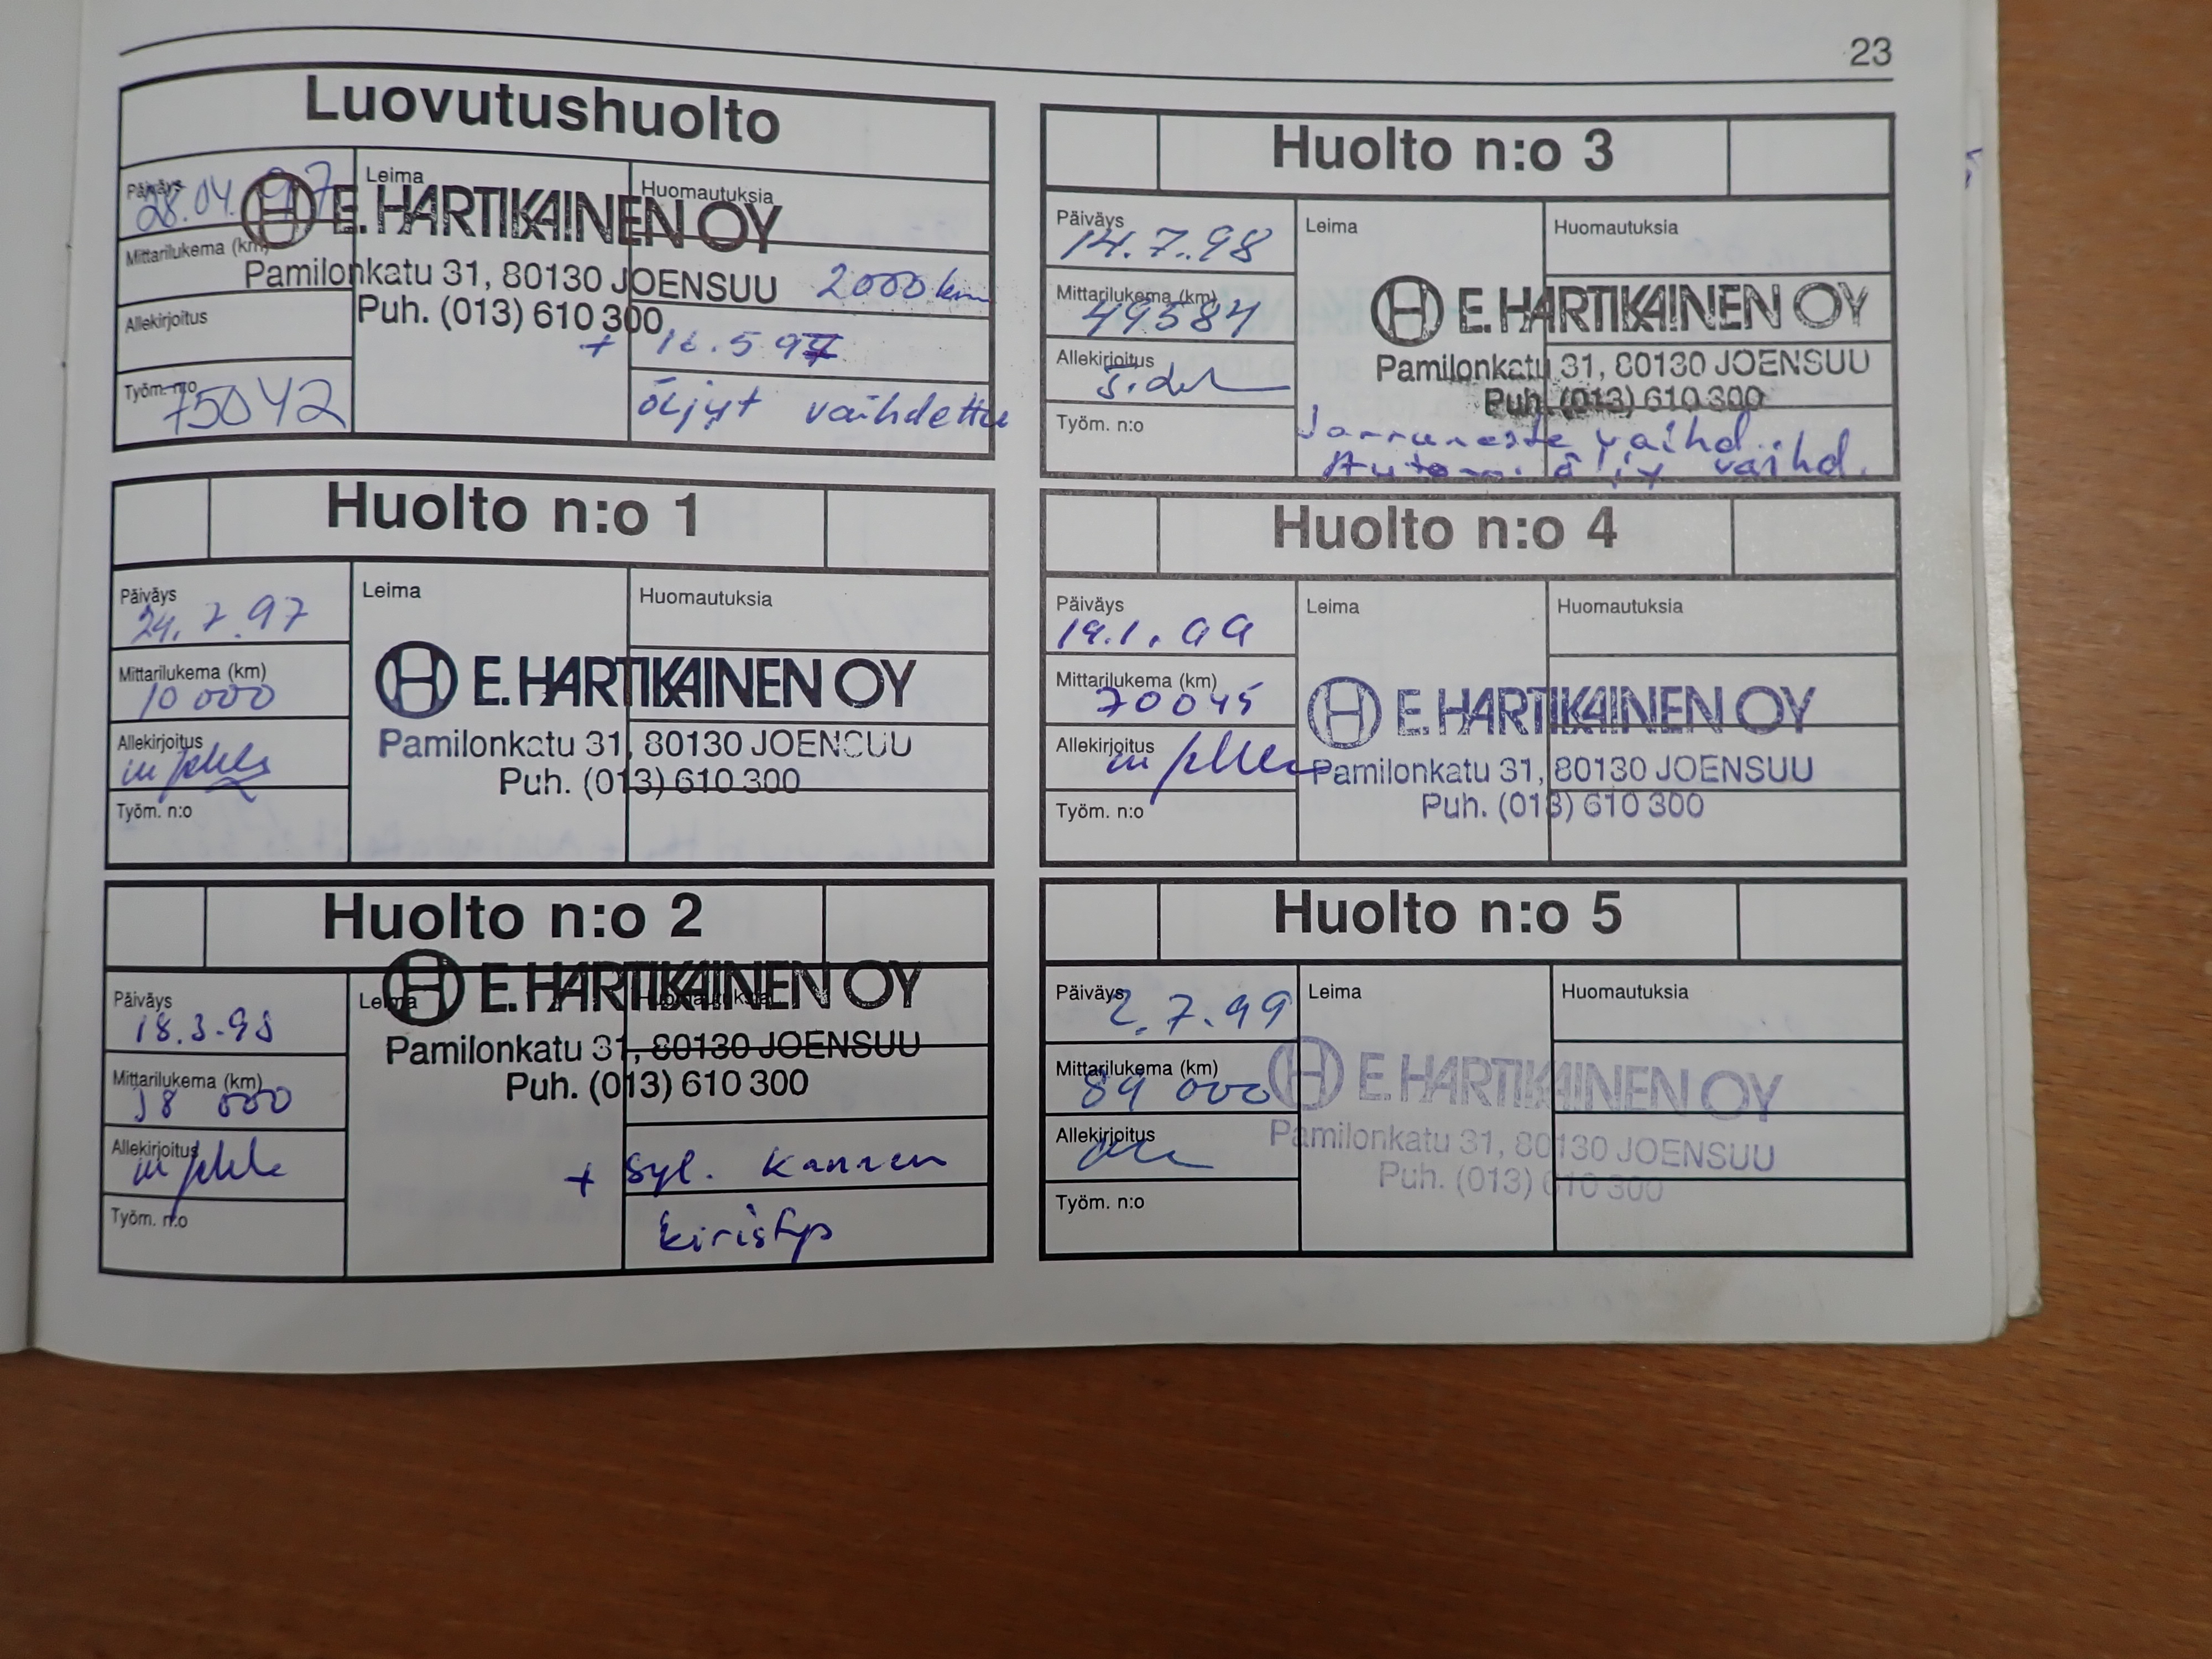 23
Luovutushuolto
Päiväys
28.04.97
Leima
Huomautuksia
E. HARTIKAINEN OY
Mittarilukema (km)
Pamilonkatu 31, 80130 JOENSUU
2000 km
Puh. (013) 610 300
Allekirjoitus
+ 16.5 97
Työm. n:o
75042
öljyt vaihdettu
Huolto n:o 1
Päiväys
24.7.97
Leima
Huomautuksia
Mittarilukema (km)
10 000
E. HARTIKAINEN OY
Pamilonkatu 31, 80130 JOENSUU
Puh. (013) 610 300
Allekirjoitus
Työm. n:o
Huolto n:o 2
E. HARTIKAINEN OY
Päiväys
18.3.98
Leima
Huomautuksia
Pamilonkatu 31, 80130 JOENSUU
Puh. (013) 610 300
Mittarilukema (km)
38 000
Allekirjoitus
+ syl. kannen
Työm. n:o
kiristys
Huolto n:o 3
Päiväys
14.7.98
Leima
Huomautuksia
Mittarilukema (km)
49584
E. HARTIKAINEN OY
Pamilonkatu 31, 80130 JOENSUU
Puh. (013) 610 300
Allekirjoitus
Työm. n:o
Jarruneste vaihd.
öljy vaihd.
Huolto n:o 4
Päiväys
19.1.99
Leima
Huomautuksia
Mittarilukema (km)
70045
E. HARTIKAINEN OY
Pamilonkatu 31, 80130 JOENSUU
Puh. (013) 610 300
Allekirjoitus
Työm. n:o
Huolto n:o 5
Päiväys
2.7.99
Leima
Huomautuksia
Mittarilukema (km)
89 000
E. HARTIKAINEN OY
Pamilonkatu 31, 80130 JOENSUU
Puh. (013) 610 300
Allekirjoitus
Työm. n:o